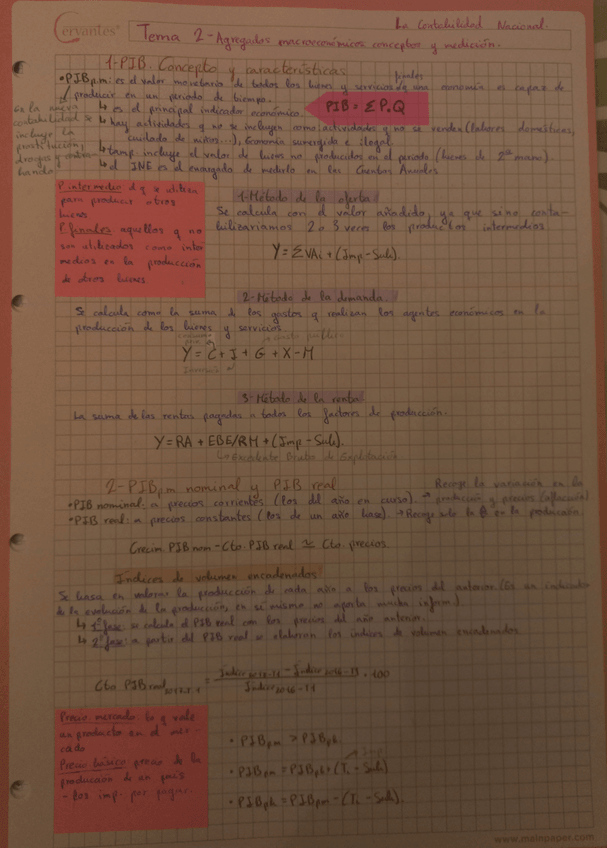 La Contabilidad Nacional.
Cervantes
Tema 2 - Agregados macroeconómicos conceptos y medición.
1- PIB. Concepto y características
finales
• PIBp.m: es el valor monetario de todos los bienes y servicios de una economía es capaz de
producir en un periodo de tiempo.
↳ es el principal indicador económico.
PIB = ΣP.Q
↳ hay actividades q no se incluyen como actividades q no se venden (labores domésticas,
cuidado de niños...), Economía sumergida e ilegal.
↳ tamp. incluye el valor de bienes no producidos en el periodo (bienes de 2ª mano).
↳ el INE es el encargado de medirlo en las Cuentas Anuales
En la nueva
contabilidad se
incluye la
prostitución,
drogas y contra-
bando
P. intermedio: el q se utiliza
para producir otros
bienes
P. finales: aquellos q no
son utilizados como inter
medios en la producción
de otros bienes
1- Método de la oferta
Se calcula con el valor añadido, ya que sino conta-
bilizaríamos 2 o 3 veces los productos intermedios
Y = ΣVAi + (Imp - Sub).
2- Método de la demanda.
Se calcula como la suma de los gastos q realizan los agentes económicos en la
producción de los bienes y servicios.
gasto público
Y = C + I + G + X - M
Inversión
3- Método de la renta
La suma de las rentas pagadas a todos los factores de producción.
Y = RA + EBE/RM + (Imp - Sub).
↳ Excedente Bruto de Explotación
2- PIBp.m nominal y PIB real
• PIB nominal: a precios corrientes (los del año en curso). → Recoge la variación en la
producción y precios (inflación)
• PIB real: a precios constantes (los de un año base). → Recoge solo la en la producción
Crecim. PIB nom - Cto PIB real ≃ Cto. precios.
Índices de volumen encadenados
Se basa en valorar la producción de cada año a los precios del anterior (Es un indicador
de la evolución de la producción, en sí mismo no aporta mucha inform.)
↳ 1ª fase: se calcula el PIB real con los precios del año anterior.
↳ 2ª fase: a partir del PIB real se elaboran los índices de volumen encadenados
Cto PIB real = Índice - Índice · 100
Índice
Precio mercado: lo q vale
un producto en el mer-
cado
Precio básico: precio de la
producción de un país
- los imp. por pagar.
• PIBpm > PIBpb
• PIBpm = PIBpb + (Ti - Sub)
• PIBpb = PIBpm - (Ti - Sub).
www.mainpaper.com